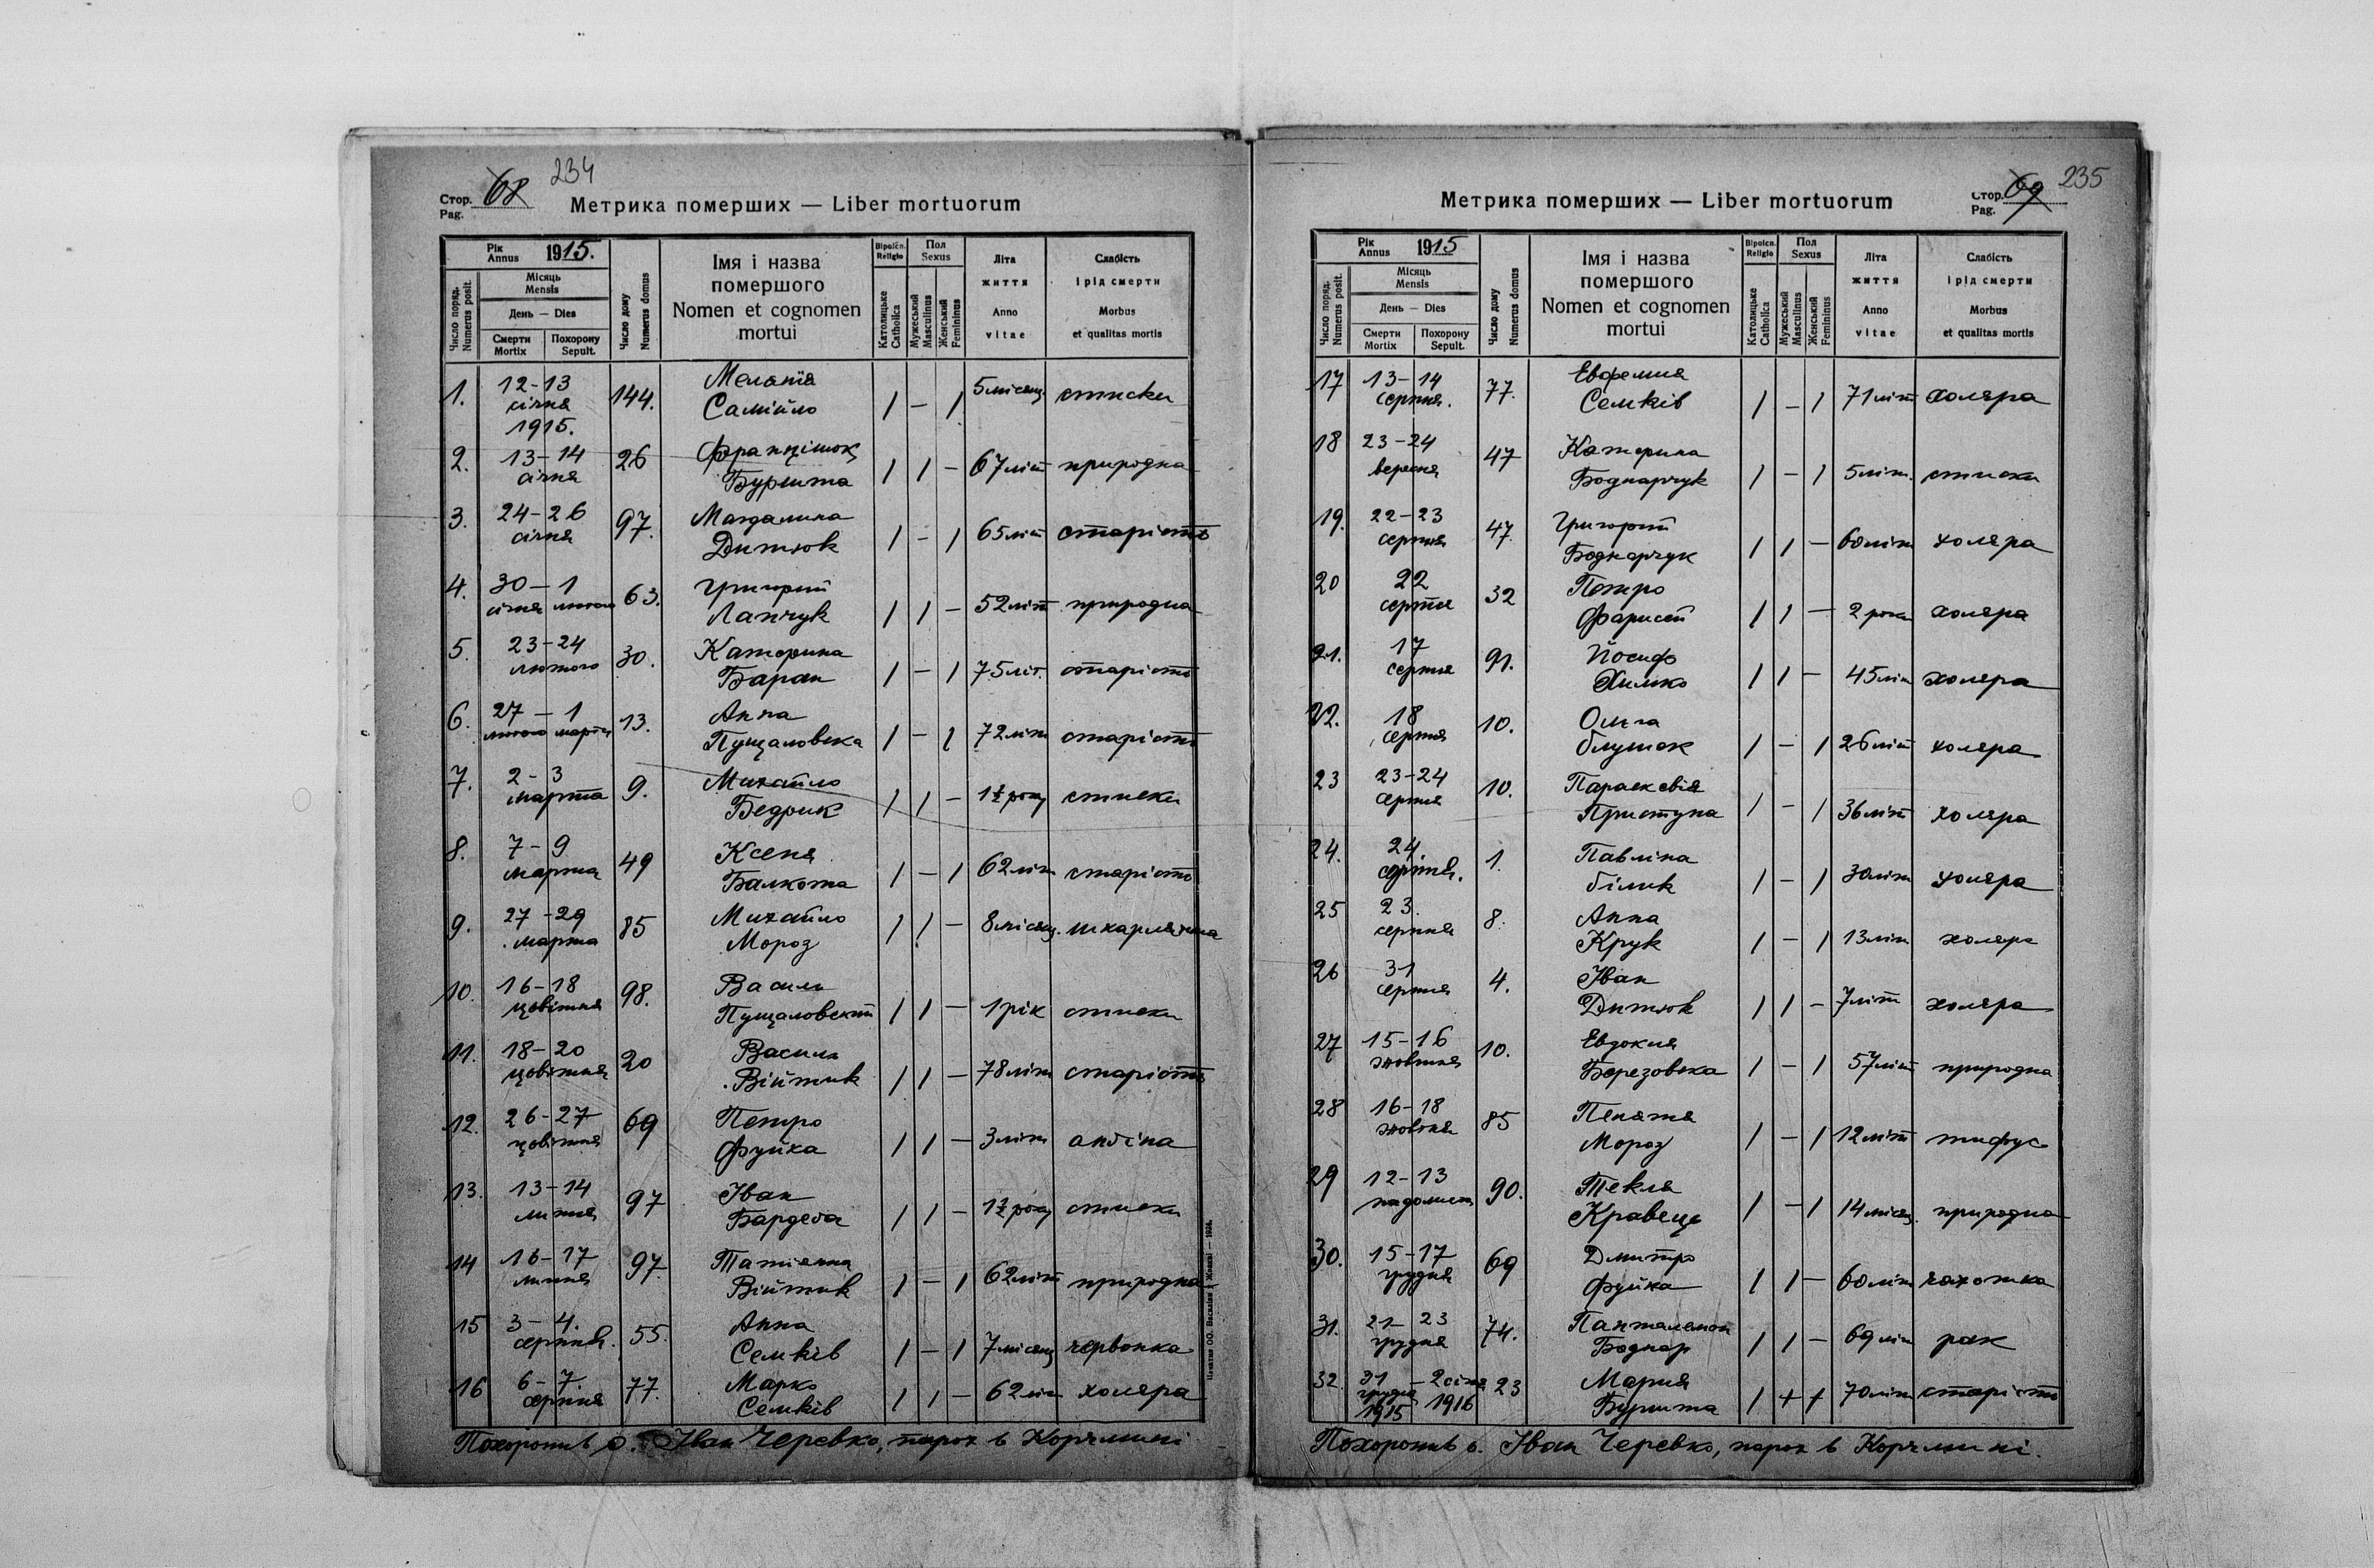 234
Стор. 68
Pag.
Метрика померших — Liber mortuorum
Рік Annus 1915.
Місяць Mensis
День — Dies
Смерти Mortix
Похорону Sepult.
Число поряд. Numerus posit.
Число дому Numerus domus
Імя і назва помершого
Nomen et cognomen mortui
Віроісп. Religio
Католицьке Catholica
Пол Sexus
Мужеський Masculinus
Женський Femininus
Літа життя
Anno vitae
Слабість і рід смерти
Morbus et qualitas mortis
1. 12-13 січня 1915. 144. Меланія Самійло 1 - 1 5 місяц. стиски
2. 13-14 січня 26 Францішок Буршта 1 1 - 67 літ природна
3. 24-26 січня 97. Магдалина Дитюк 1 - 1 65 літ старість
4. 30-1 січня лютого 63. Григорий Лапчук 1 1 - 52 літ природна
5. 23-24 лютого 30. Катерина Баран 1 - 1 75 літ. старість
6. 27-1 лютого марта 13. Анна Пущаловска 1 - 1 72 літ старість
7. 2-3 марта 9. Михайло Бедрик 1 1 - 1½ року стиски
8. 7-9 марта 49 Ксеня Балкота 1 - 1 62 літ старість
9. 27-29 марта 85 Михайло Мороз 1 1 - 8 місяц. шкарлятина
10. 16-18 цвітня 98. Василь Пущаловский 1 1 - 1 рік стиски
11. 18-20 цвітня 20 Василь Війтик 1 1 - 78 літ старість
12. 26-27 цвітня 69 Петро Фуйка 1 1 - 3 літ ангіна
13. 13-14 липня 97 Іван Бардега 1 1 - 1½ року стиски
14 16-17 липня 97. Татіянна Війтик 1 - 1 62 літ природна
15 3-4. серпня. 55. Анна Семків 1 - 1 7 місяц червонка
16 6-7. серпня 77. Марко Семків 1 1 - 62 літ холяра
Похоронив о. Іван Черевко, парох в Корчмині
235
Стор. 69
Pag.
Метрика померших — Liber mortuorum
Рік Annus 1915
Місяць Mensis
День — Dies
Смерти Mortix
Похорону Sepult.
Число поряд. Numerus posit.
Число дому Numerus domus
Імя і назва помершого
Nomen et cognomen mortui
Віроісп. Religio
Католицьке Catholica
Пол Sexus
Мужеський Masculinus
Женський Femininus
Літа життя
Anno vitae
Слабість і рід смерти
Morbus et qualitas mortis
17 13-14 серпня. 77. Евфемия Семків 1 - 1 71 літ холяра
18 23-24 вересня 47 Катерина Боднарчук 1 - 1 5 літ. стиски
19. 22-23 серпня 47. Григорий Боднарчук 1 1 - 60 літ холяра
20 22 серпня 32 Петро 1 1 - 2 роки холяра
21. 17 серпня 91. Йосиф Химко 1 1 - 45 літ холяра
22. 18 серпня 10. Ольга 1 - 1 26 літ холяра
23 23-24 серпня 10. Параскевія Приступа 1 - 1 36 літ холяра
24. 24 серпня. 1. Павліна Білик 1 - 1 30 літ холяра
25 23. серпня 8. Анна Крук 1 - 1 13 літ холяра
26 31 серпня 4. Іван Дитюк 1 1 - 7 літ холяра
27 15-16 жовтня 10. Евдокия Березовска 1 - 1 57 літ природна
28 16-18 жовтня 85 Мороз 1 - 1 12 літ тифус
29 12-13 падолиста 90. Текля Кравець 1 - 1 14 місяц. природна
30. 15-17 грудня 69 Дмитро Фуйка 1 1 - 60 літ чахотка
31. 21-23 грудня 74. Панталемон Боднар 1 1 - 69 літ рак
32. 31 грудня 1915 - 2 січня 1916 23 Мария Буршта 1 + 1 70 літ старість
Похоронив о. Іван Черевко, парох в Корчмині.